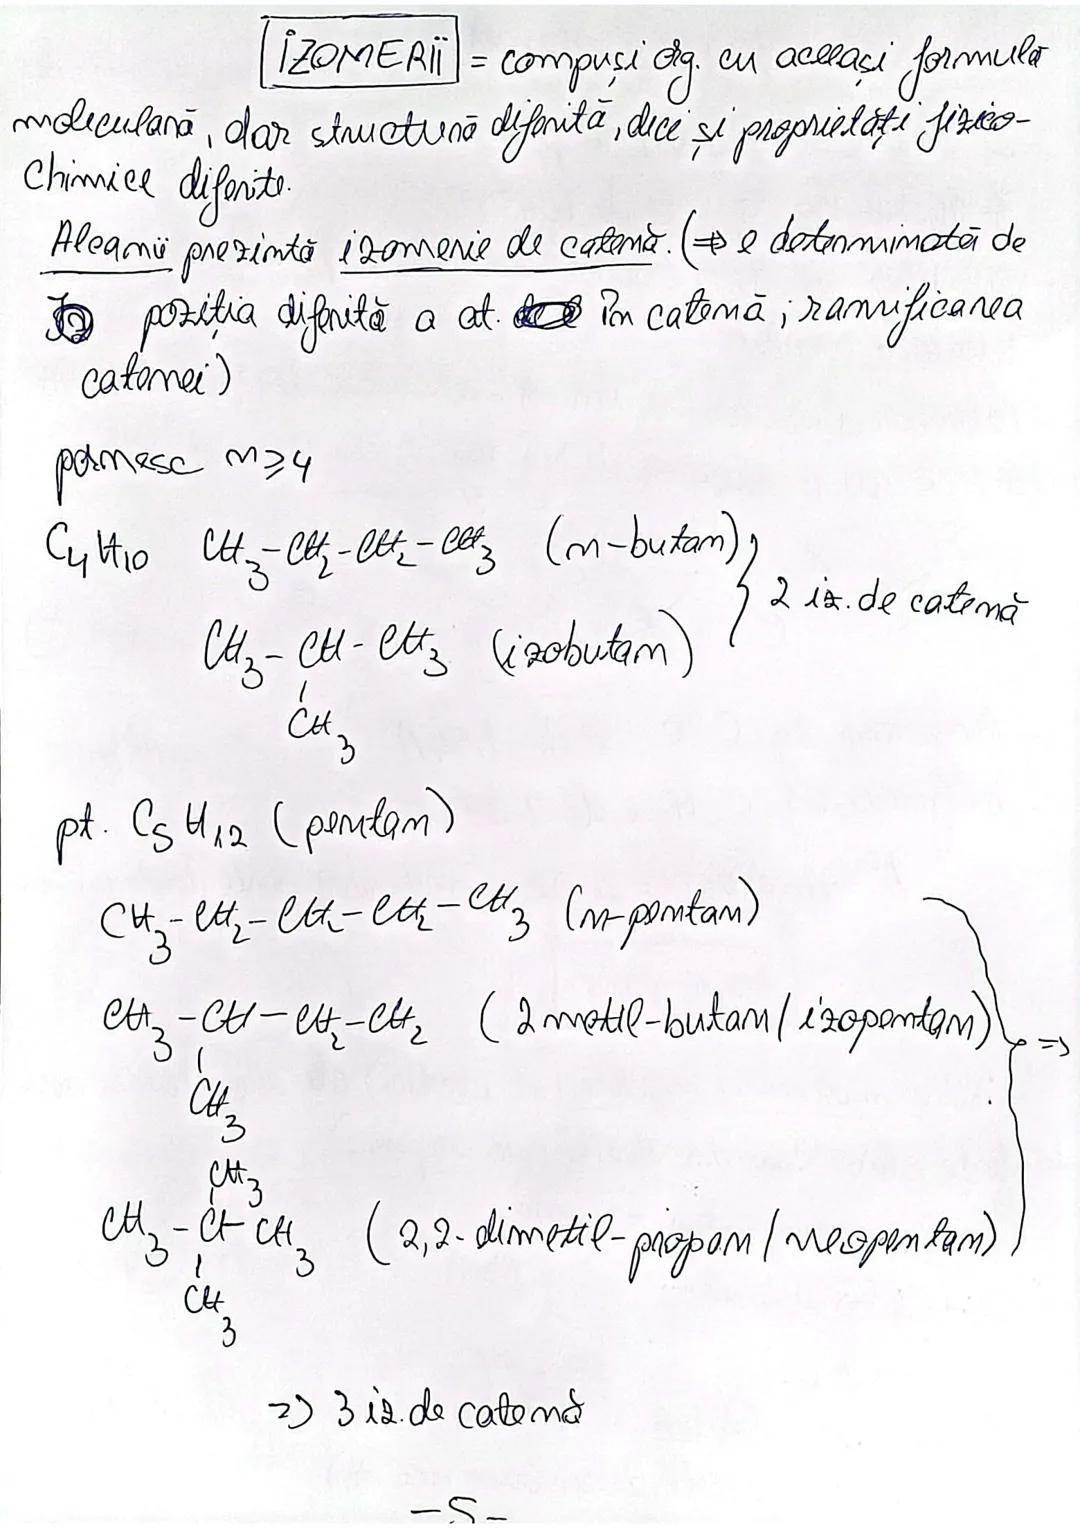 IZOMERII = compuși org. cu aceeași formulă
moleculară, dar structură diferită, deci și proprietăți fizico-
chimice diferite.
Alcanii prezintă izomerie de catenă. (⇒ e determinată de
poziția diferită a at. în catenă; ramificarea
catenei)
pornesc n≥4
C4H10 CH3-CH2-CH2-CH3 (n-butan)
2 iz. de catenă
CH3-CH-CH3 (izobutan)
CH3
pt. C5H12 (pentan)
CH3-CH2-CH2-CH2-CH3 (n-pentan)
CH3-CH-CH2-CH2 (2 metil-butan/izopentan) =>
CH3
CH3
CH3-C-CH3 (2,2-dimetil-propan/neopentan)
CH3
=> 3 iz. de catenă
-5-